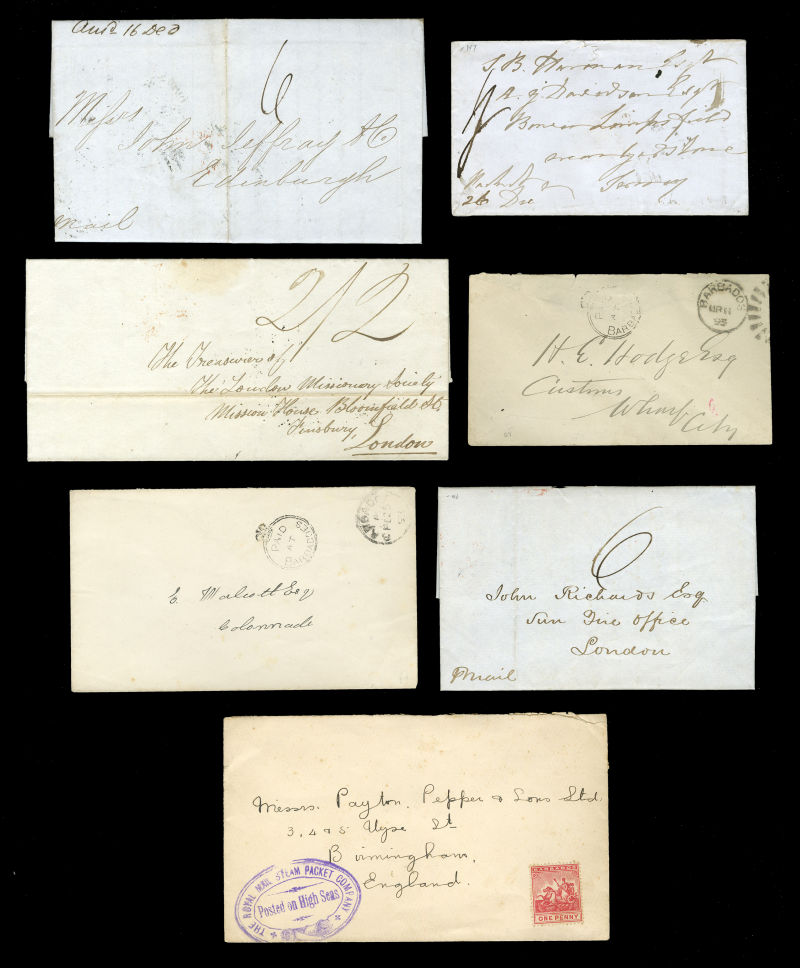 16 Dec
6
Messrs
John Jeffray & Co
Edinburgh
Mail
S. B. Esqr
Esqr
Surrey
26 Dec
2/2
The Treasurer of
The London Missionary Society
Mission House Bloomfield St
Finsbury,
London
BARBADOS
BARBADOS
93
H. E. Hodge Esq
Customs
Wharf
City
PAID
AT
BARBADOES
E. Esq
Colonnade
6
John Richards Esq
Sun Fire Office
London
Mail
Messrs. Payton, Pepper & Sons Ltd.
3, 4 & 5 Vyse St
Birmingham,
England.
THE ROYAL MAIL STEAM PACKET COMPANY
Posted on High Seas
BARBADOS
ONE PENNY